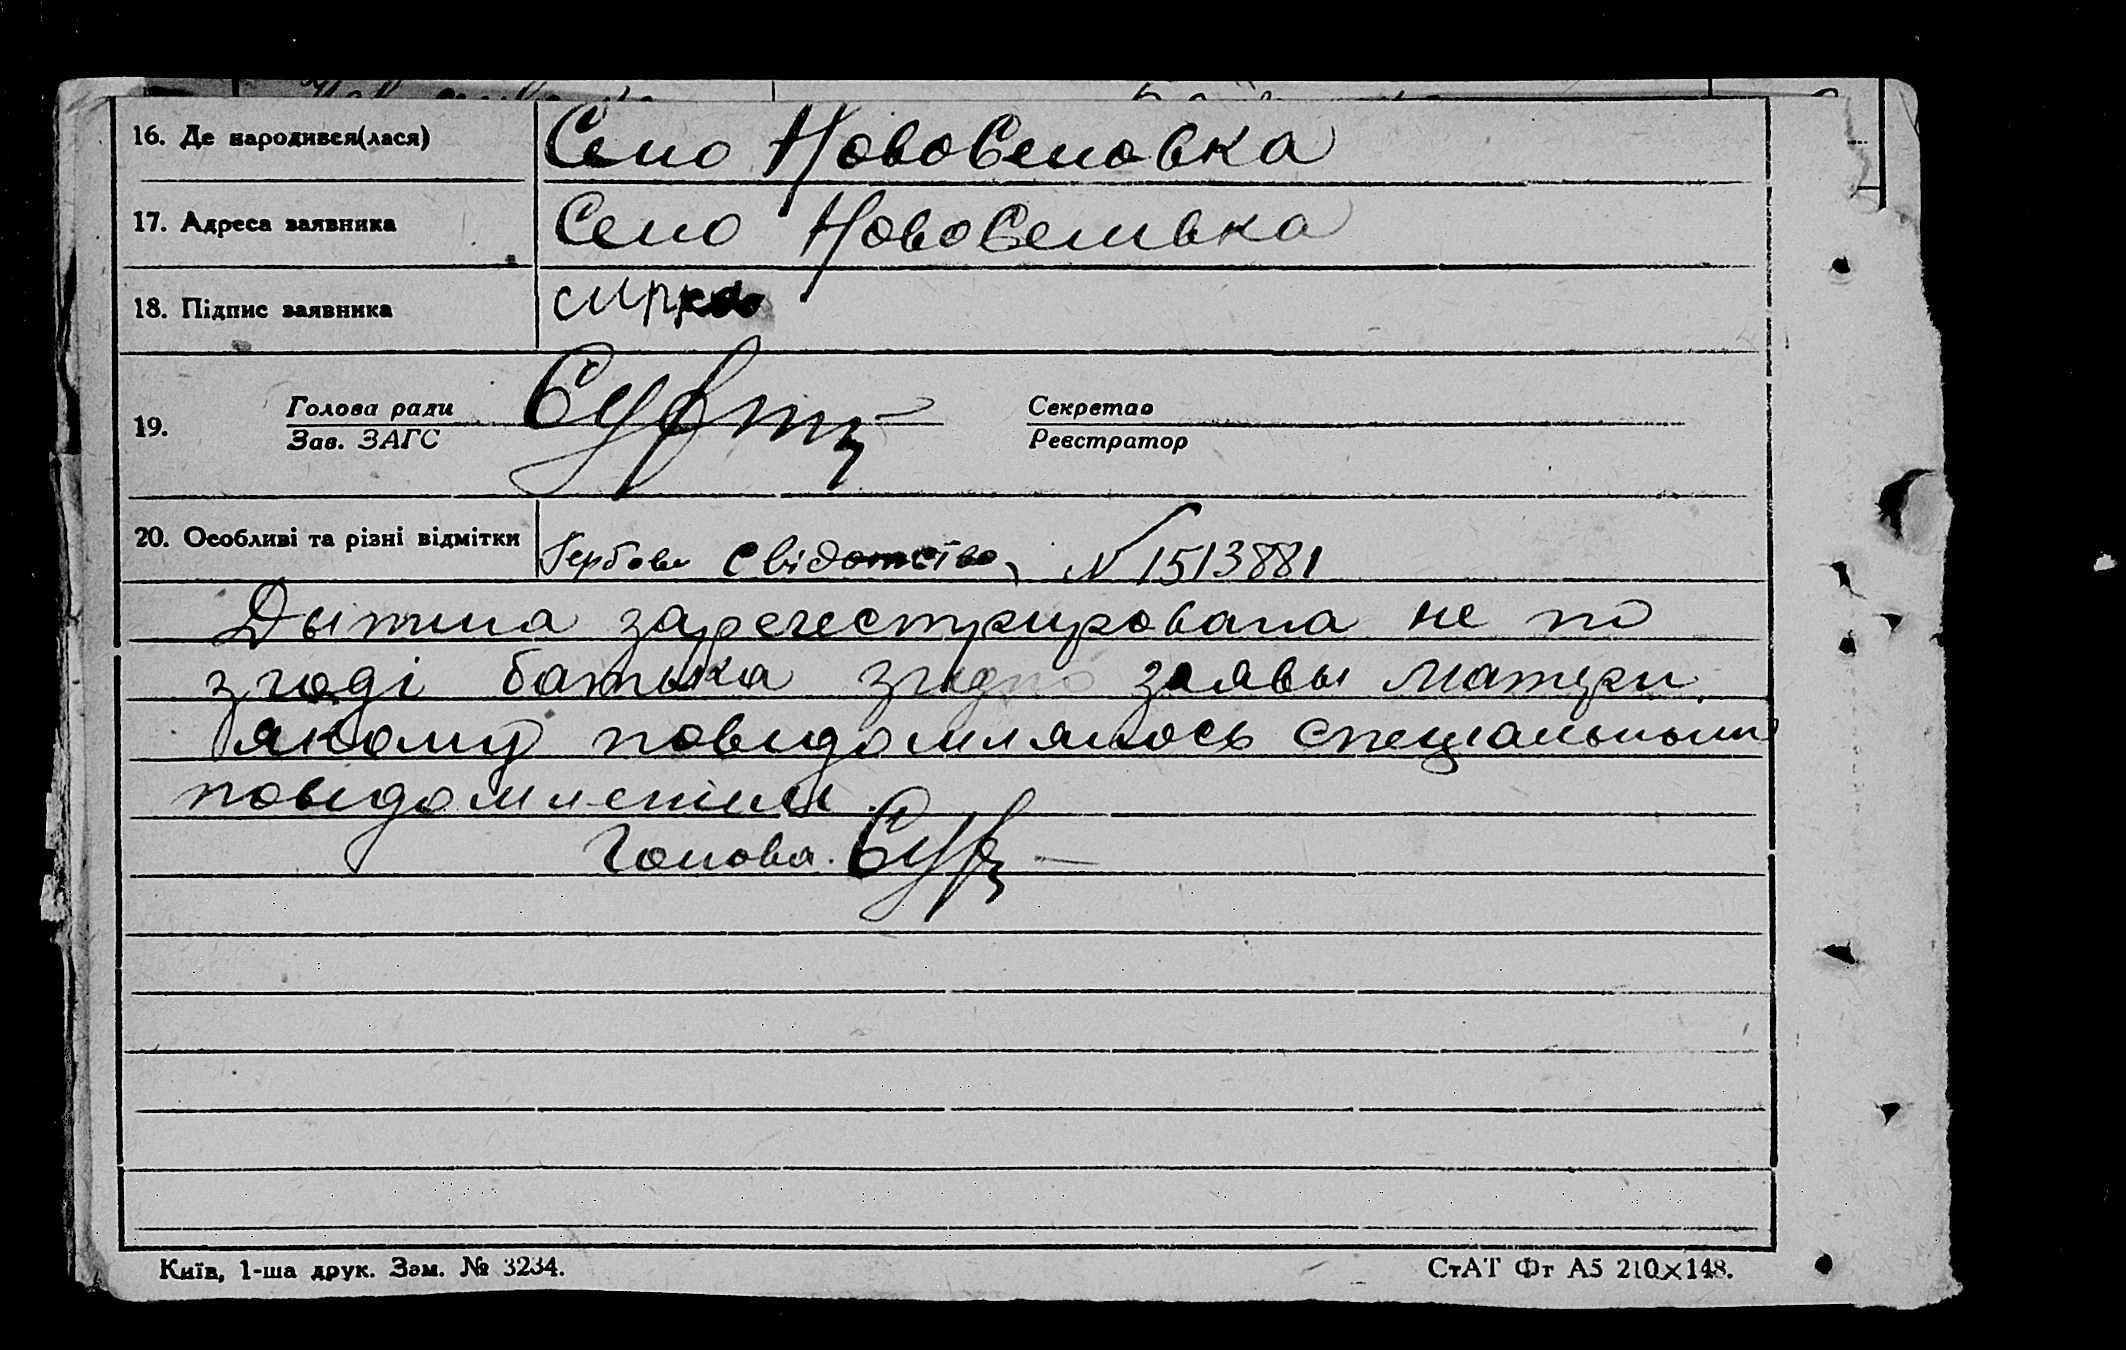 16. Де народився(лася) Село НовоСеловка
17. Адреса заявника Село НовоСеливка
18. Підпис заявника
19. Голова ради Секретар
Зав. ЗАГС Реєстратор
20. Особливі та різні відмітки Гербове свідотство, N 1513881
Дытина зарегестрирована не по
згоді батька згидно заявы матери
якому повидомлялось специальным
повидомлением.
Голова.
Київ, 1-ша друк. Зам. № 3234. СтАТ Фт А5 210×148.